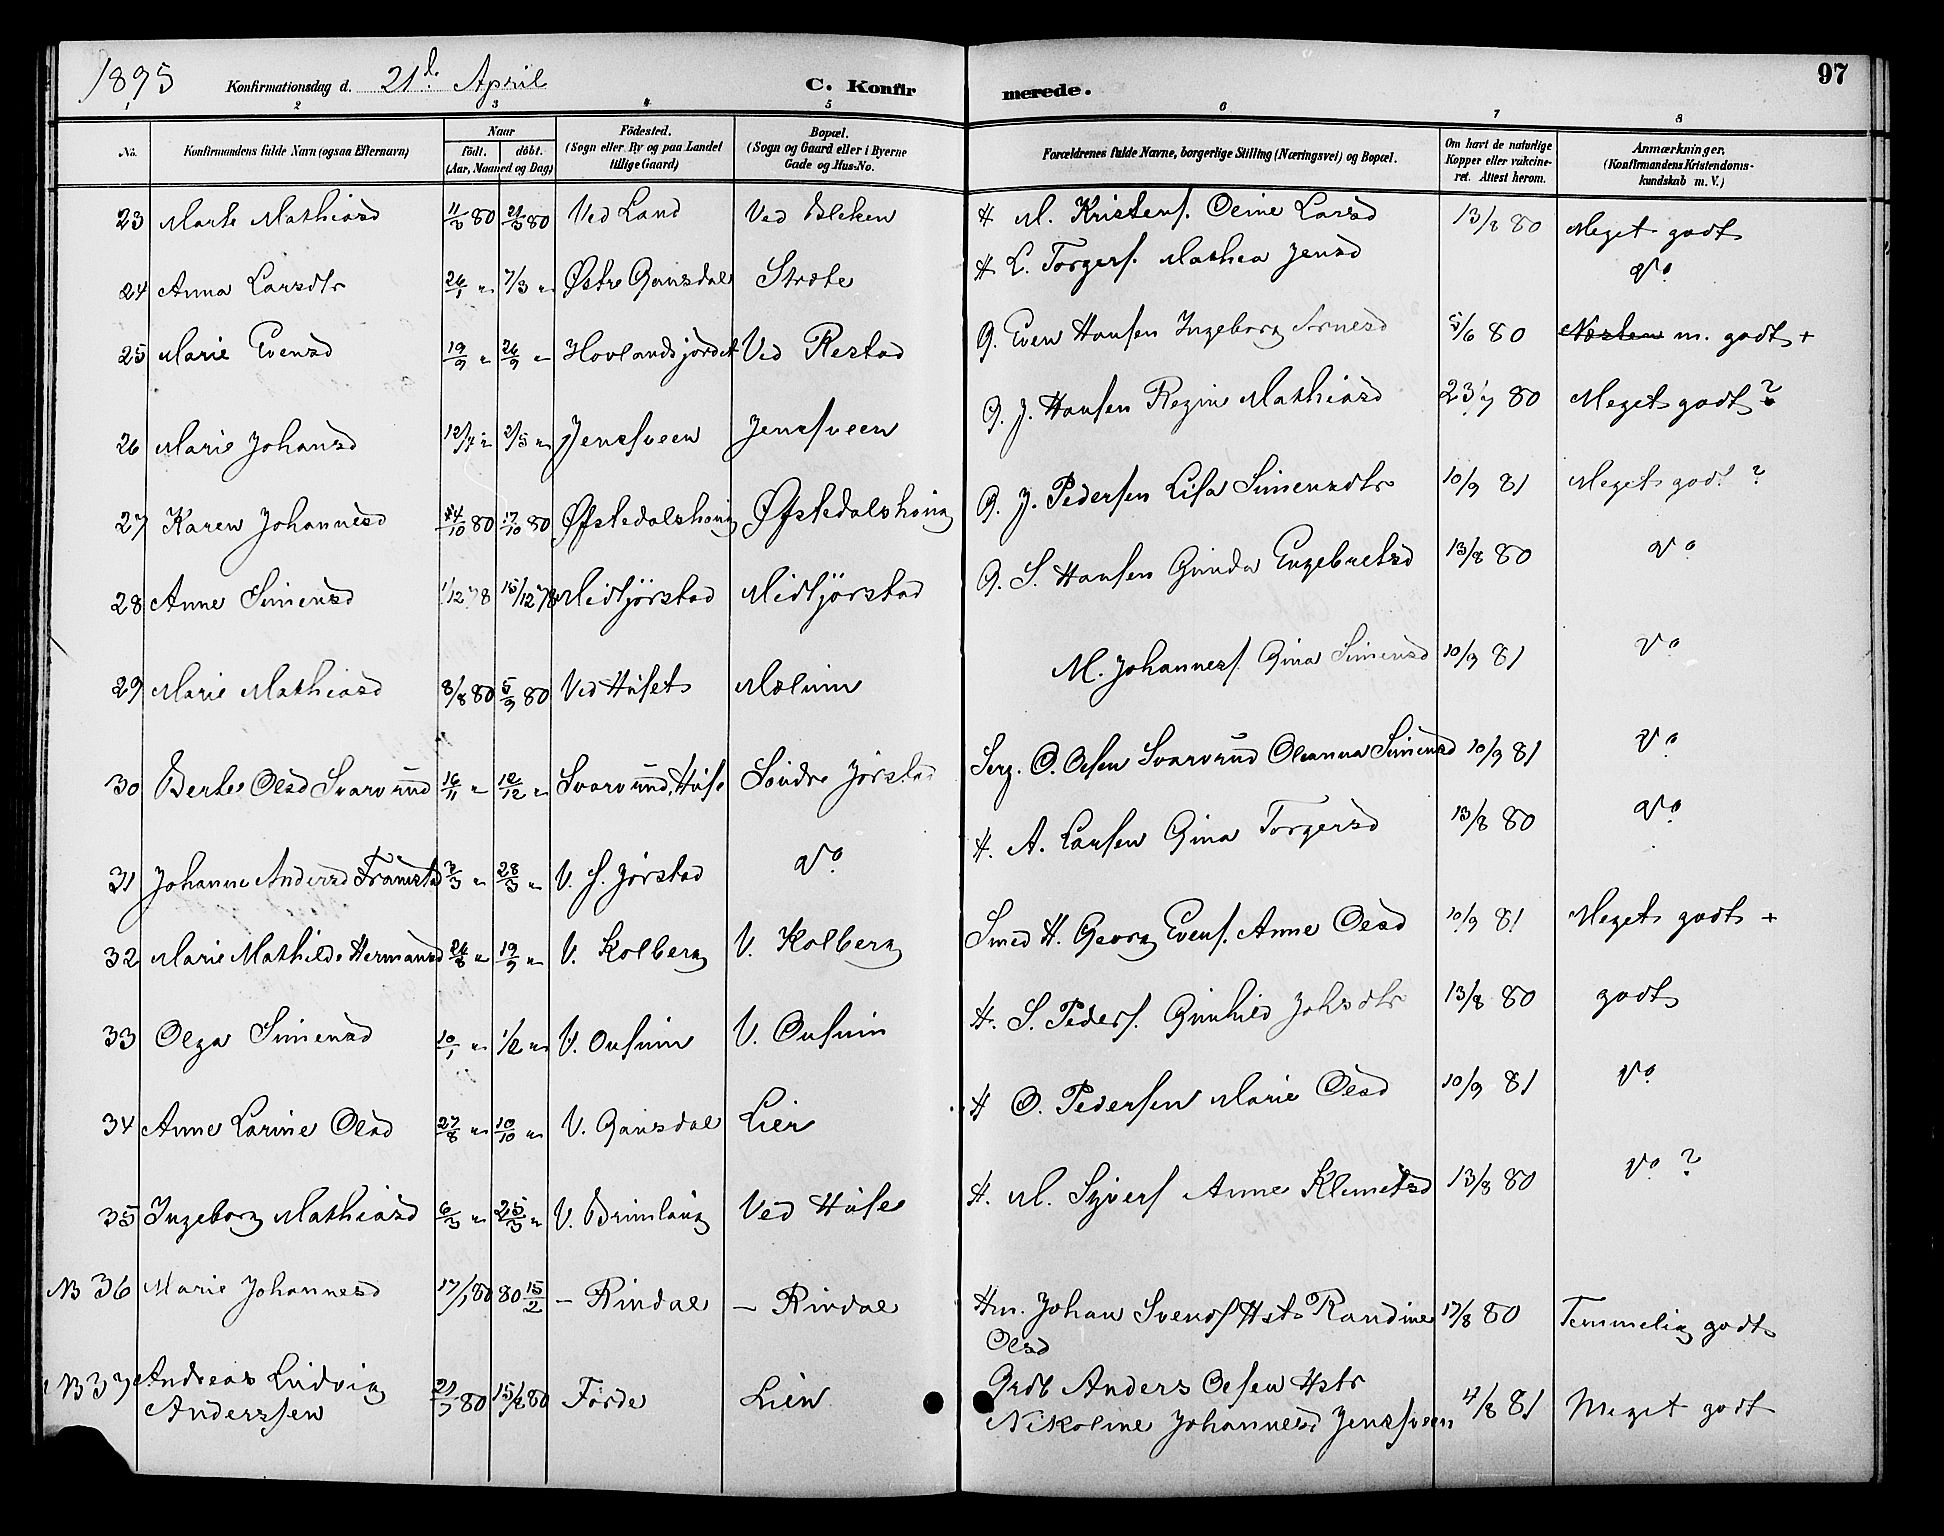 1895 Konfirmationsdag d. 21de April C. Konfirmerede. 97
1 2 3 4 5 6 7 8
No. Konfirmandens fulde Navn (ogsaa Efternavn) Naar födt. döbt. (Aar, Maaned og Dag) Födested. (Sogn eller By og paa Landet tillige Gaard) Bopæl. (Sogn og Gaard eller i Byerne Gade og Hus-No. Forældrenes fulde Navne, borgerlige Stilling (Næringsvei) og Bopæl. Om havt de naturlige Kopper eller vakcineret. Attest herom. Anmærkninger. (Konfirmandens Kristendomskundskab m. V.)
23 Marte Mathiasd 11/3 80 80 Ved Land Ved Bleken H M. Kristens. Oline Larsd 13/8 80 Meget godt
24 Anna Larsdtr 26/1 " 7/3 " Østre Gausdal Stræte H L. Torgers. Mathea Jensd do
25 Marie Evensd 19/9 " 26/9 " Hovlandsjordet Ved Restad G. Even Hansen Ingeborg Arnesd 5/6 80 Næsten m. godt +
26 Marie Johansd 12/4 " 2/5 " Jensveen Jensveen G. J. Hansen Regine Mathiasd 80 Meget godt ?
27 Karen Johannesd 80 17/10 80 Øfstedalshoug Øfstedalshoug G. J. Pedersen Lisa Simensdtr 10/9 81 Meget godt ?
28 Anne Simensd 1/12 78 15/12 78 Midtjörstad Midtjörstad G. S. Hansen Gunda Engebretsd 13/8 80 do
29 Marie Mathiasd 8/8 80 5/9 80 Ved Huset Mælum M. Johanness. Gina Simensd 10/9 81 do
30 Berte Olsd Svarvrud 16/11 " 12/12 " Svarvrud, Huse Söndre Jörstad Serg. O. Olsen Svarvrud Oleanna Simensd 10/9 81 do
31 Johanne Andersd Framstad 3/3 " 28/3 " V. S. Jörstad do H. A. Larsen Gina Torgersd 13/8 80 do
32 Marie Mathilde Hermansd 26/8 " 19/9 " V. Kolberg V. Kolberg Smed H. Georg Evens. Anne Olsd 10/9 81 Meget godt +
33 Olga Simensd 10/1 " 1/2 " V. Ousum V. Ousum H. S. Peders. Gunhild Johsdtr 13/8 80 godt
34 Anne Larine Olsd 27/8 " 10/10 " V. Gausdal Lier H O. Pedersen Marie Olsd 10/9 81 do
35 Ingeborg Mathiasd 6/3 " 25/3 " V. Brimlaug Ved Huse H. M. Syvers Anne Klemetsd 13/8 80 do ?
NB 36 Marie Johannesd 17/1 80 80 15/2 – Rindal – Rindal Hm. Johan Svends Hstr Randine 17/8 80 Temmelig godt
Olsd
NB 37 Andreas Ludvig 21/7 80 15/8 80 Förde Lien Grdb Anders Olsen Hstr 4/8 81 Meget godt
Anderssen Nikoline Johannesd Jensveen